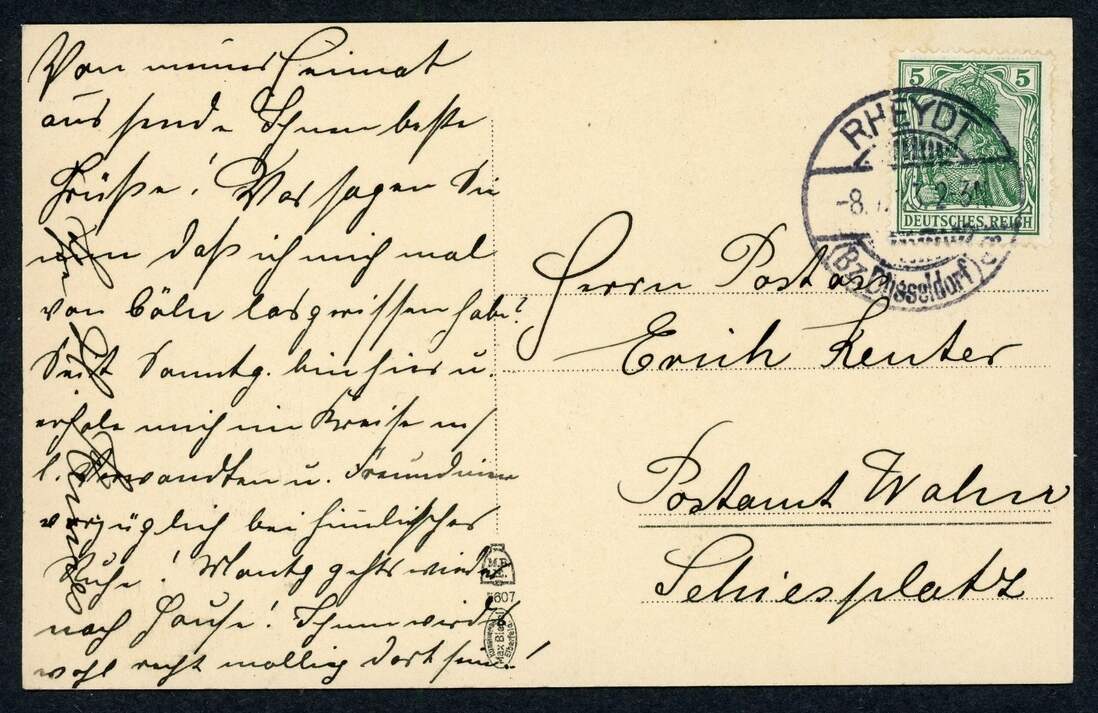 Von meiner Heimat
aus sende Ihnen beste
Grüße! Was sagen Sie
nun daß ich mich mal
von Cöln losgerissen habe?
Seit Sonntg. bin hier u.
erhole mich im Kreise m/
l. Verwandten u. Freundinnen
vorzüglich bei himmlischer
Ruhe! Montg gehts wieder
nach Hause! Ihnen wird's
wohl recht mollig dort sein!
5 5
DEUTSCHES REICH
RHEYDT
-8. 2-3N
(Bz. Düsseldorf)
Herrn Postass.
Erich Kenter
Postamt Wahn
Schiesplatz
607
Max Bi
Elberfeld